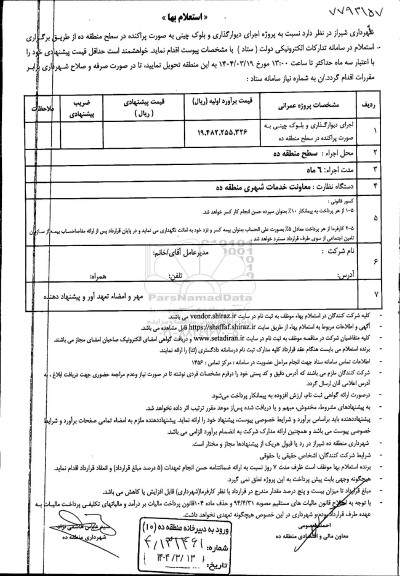 « استعلام بها »
شهرداری شیراز در نظر دارد نسبت به پروژه اجرای دیوارگذاری و بلوک چینی به صورت پراکنده در سطح منطقه ده از طریق برگزاری
استعلام در سامانه تدارکات الکترونیکی دولت ( ستاد ) با مشخصات پیوست اقدام نماید. خواهشمند است حداقل قیمت پیشنهادی خود را
با اعتبار سه ماه حداکثر تا ساعت ۱۳:۰۰ مورخ ۱۴۰۴/۰۳/۱۹ به این منطقه تحویل نمایید، تا در صورت صرفه و صلاح شهرداری برابر
مقررات اقدام گردد.
ردیف مشخصات پروژه عمرانی قیمت برآورد اولیه (ریال) قیمت پیشنهادی ( ریال ) ضریب پیشنهادی ملاحظات
۱ اجرای دیوارگذاری و بلوک چینی به صورت پراکنده در سطح منطقه ده ۱۹,۴۸۲,۲۵۵,۳۲۶
۲ محل اجرا : سطح منطقه ده
۳ مدت اجراء: ۶ ماه
۴ دستگاه نظارت : معاونت خدمات شهری منطقه ده
۵ کسور قانونی :
۱-۵ از هر پرداخت به پیمانکار ۱۰٪ بعنوان سپرده حسن انجام کار کسر خواهد شد.
۲-۵ کارفرما از هر پرداخت معادل ۵٪ بصورت علی الحساب بعنوان بیمه کسر و نزد خود به امانت نگهداری می نماید و در پایان قرارداد پس از ارائه مفاصاحساب بیمه از سازمان
تامین اجتماعی از سوی طرف قرارداد مسترد خواهد شد.
۶ نام شرکت : مدیرعامل آقای/خانم:
آدرس: تلفن: همراه:
۷ مهر و امضاء تعهد آور و پیشنهاد دهنده
- کلیه شرکت کنندگان در استعلام بهاء موظف به ثبت نام در سایت vendor.shiraz.ir می باشند.
- آگهی و اطلاعات مربوط به استعلام بهاء از طریق سایت https://shaffaf.shiraz.ir قابل مشاهده می باشد.
- کلیه متقاضیان شرکت در مناقصه موظف به ثبت نام در سایت www.setadiran.ir و دریافت گواهی امضای الکترونیک صاحبان امضای مجاز می باشند.
- برنده استعلام می بایست هنگام عقد قرارداد کلیه مدارک ثبت نام درسامانه دادگستری (ثنا) را ارائه نمایند.
- اطلاعات تماس سامانه ستاد جهت انجام مراحل عضویت در سامانه : مرکز تماس : ۱۴۵۶
- شرکت کنندگان ملزم می باشند که آدرس دقیق و کد پستی خود را درفرم مشخصات فردی نوشته تا در صورت نیاز وعدم مراجعه حضوری جهت دریافت ابلاغ ، به
آدرس اعلامی آنان ارسال گردد.
- درصورت ارائه گواهی ثبت نام، ارزش افزوده به پیمانکار پرداخت می‌شود.
- به پیشنهادهای مشروط، مخدوش، مبهم و یا دریافت شده پس‌از موعد مقرر ترتیب اثر داده نخواهد شد.
- پیشنهاددهنده باید براساس برآورد و شرایط خصوصی پیوست، پیشنهاد خود را ارائه نماید. پیشنهاددهنده ملزم به امضاء تمامی صفحات برآورد و شرایط
خصوصی پیوست می باشد و همچنین ارائه مدارک شرکت به انضمام برآورد الزامی می باشد.
- شهرداری منطقه ده شیراز در رد یا قبول هریک از پیشنهادها مجاز و مختار است.
- شرایط شرکت کنندگان: اشخاص حقیقی یا حقوقی
- برنده استعلام بهاء موظف است ظرف مدت ۷ روز نسبت به ارائه ضمانتنامه حسن انجام تعهدات (۵ درصد مبلغ قرارداد) و انعقاد قرارداد اقدام نماید.
- هیچگونه وجهی بابت پیش پرداخت به این پروژه تعلق نمی گیرد.
- مبلغ قرارداد تا میزان بیست و پنج درصد مقدار مندرج در قرارداد با نظر کارفرما(شهرداری) قابل افزایش یا کاهش می باشد.
عهده طرف قرارداد بوده و شهرداری در این خصوص هیچگونه تعهدی نخواهد داشت.
معاون مالی و اقتصادی منطقه ده
شهرداری منطقه ده
ورود به دبیرخانه منطقه ده (۱۰)
شماره:
تاریخ: ۱۴۰۴/۳/۱۳
ParsNamadData